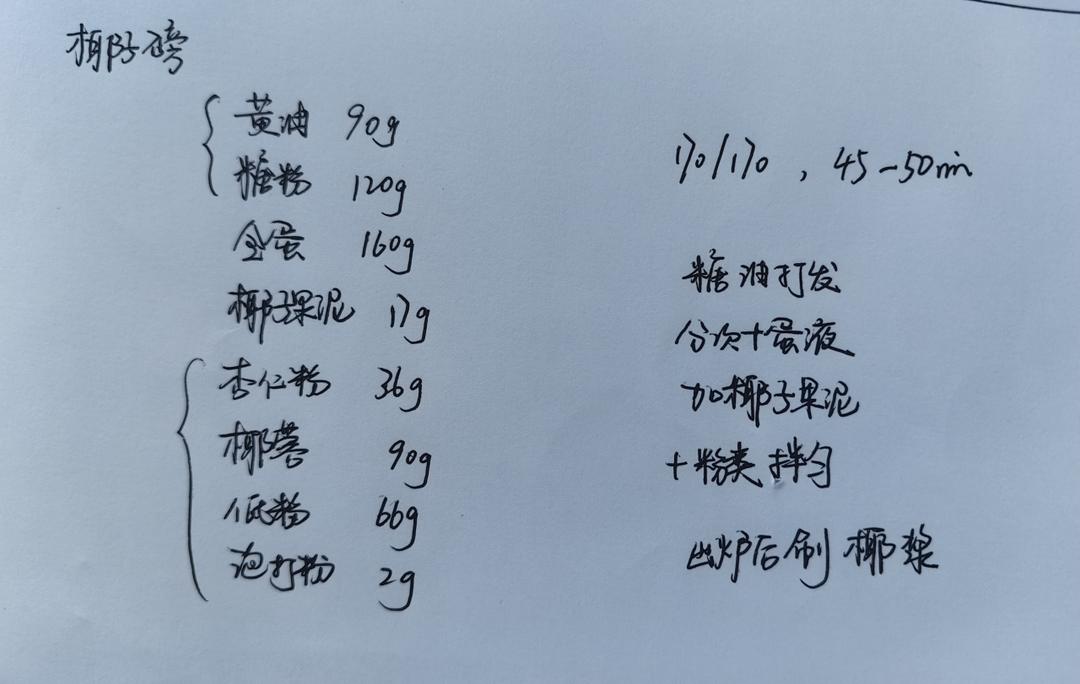 椰子磅
黄油 90g
糖粉 120g
全蛋 160g
椰子果泥 17g
杏仁粉 36g
椰蓉 90g
低粉 66g
泡打粉 2g
170/170，45-50min
糖油打发
分次+蛋液
加椰子果泥
+粉类拌匀
出炉后刷椰浆